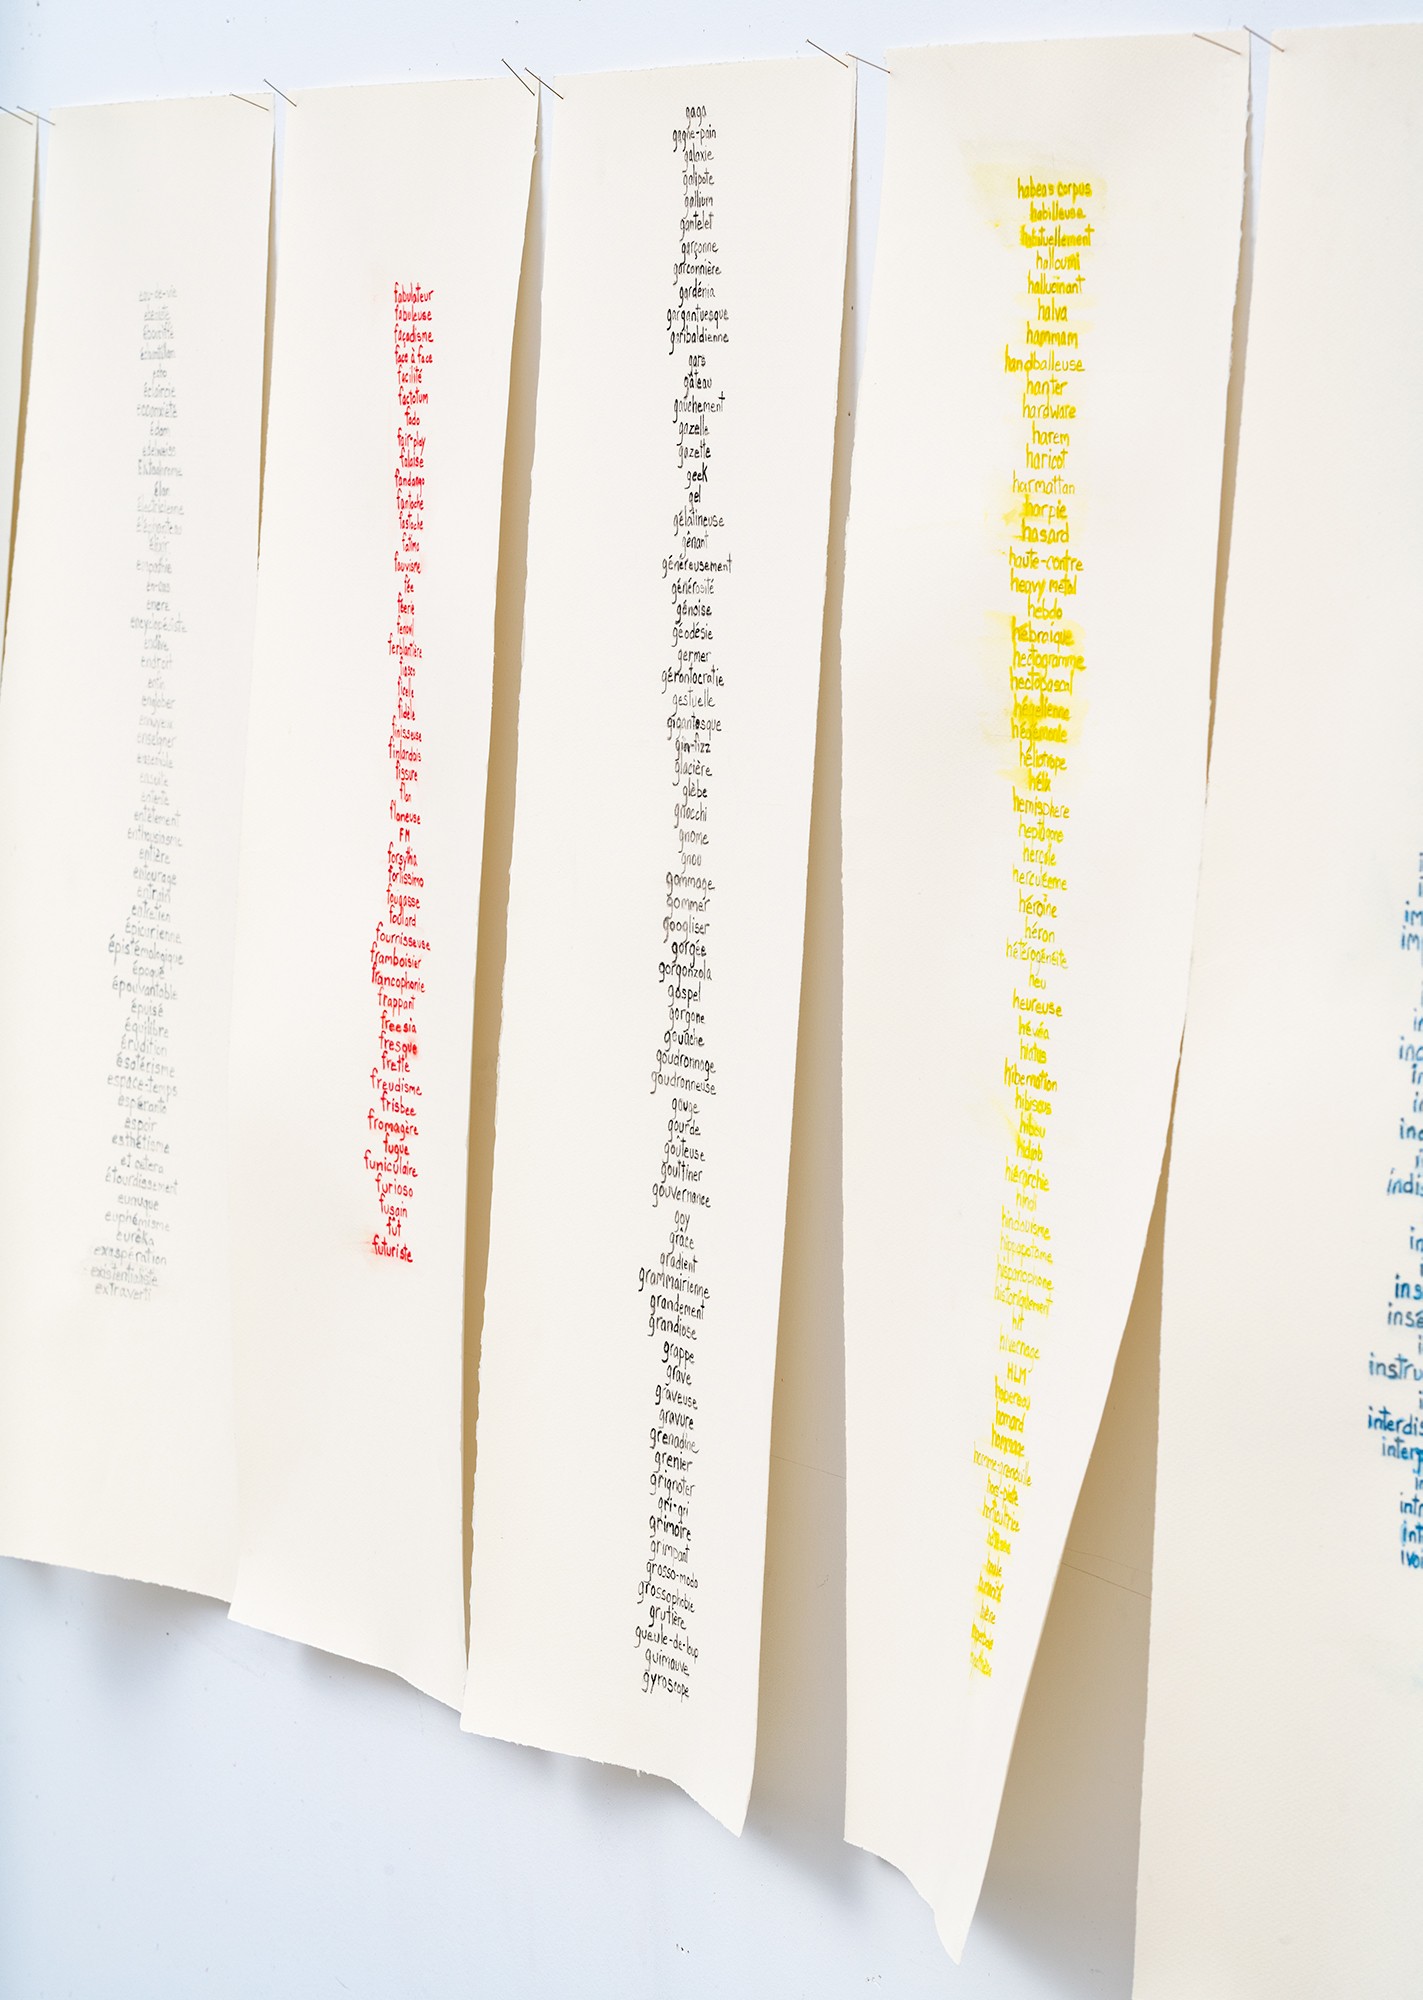 eau-de-vie
échantillon
écho
éclaircie
écoanxiété
édam
edelweiss
Ektachrome
élan
électricienne
éléphanteau
élixir
empathie
en-cas
encre
encyclopédiste
endroit
enfin
englober
ennuyeux
enseigner
ensemble
ensuite
entente
entêtement
enthousiasme
entière
entourage
entrain
entretien
épicurienne
épistémologique
époque
épouvantable
épuisé
équilibre
érudition
ésotérisme
espace-temps
espéranto
espoir
esthétisme
et cetera
étourdissement
eunuque
euphémisme
eurêka
exaspération
existentialiste
extraverti
fabulateur
fabuleuse
façadisme
face à face
facilité
factotum
fado
fair-play
falaise
fandango
fantoche
fastoche
fatma
fauvisme
fée
féerie
fenouil
ferblantière
fiasco
ficelle
fidèle
finisseuse
finlandais
fissure
flan
flâneuse
FM
forsythia
fortissimo
fougasse
foulard
fournisseuse
framboisier
francophonie
frappant
freesia
fresque
frette
freudisme
frisbee
fromagère
fugue
funiculaire
furioso
fusain
fût
futuriste
gaga
gagne-pain
galaxie
galipote
gallium
gantelet
garçonne
garçonnière
gardénia
gargantuesque
garibaldienne
gars
gâteau
gauchement
gazelle
gazette
geek
gel
gélatineuse
gênant
généreusement
générosité
génoise
géodésie
germer
gérontocratie
gestuelle
gigantesque
gin-fizz
glacière
glèbe
gnocchi
gnome
gnou
gommage
gommer
googliser
gorgée
gorgonzola
gospel
gorgone
gouache
goudronnage
goudronneuse
gouge
gourde
goûteuse
gouttiner
gouvernance
goy
grâce
gradient
grammairienne
grandement
grandiose
grappe
grave
graveuse
gravure
grenadine
grenier
grignoter
gri-gri
grimoire
grimpant
grosso-modo
grossophobie
grutière
gueule-de-loup
guimauve
gyroscope
habeas corpus
habilleuse
habituellement
halloumi
hallucinant
halva
hammam
handballeuse
hanter
hardware
harem
haricot
harmattan
harpie
hasard
haute-contre
heavy metal
hebdo
hébraïque
hectogramme
hectopascal
hégélienne
hégémonie
héliotrope
hélix
hémisphère
heptagone
hercule
herculéenne
héroïne
héron
hétérogénéité
heu
heureuse
hévéa
hiatus
hibernation
hibiscus
hibou
hidjab
hiérarchie
hindi
hindouisme
hippopotame
hispanophone
historiquement
hit
hivernage
HLM
hobereau
homard
hommage
homme-grenouille
hors-piste
horticultrice
im
im
in
ind
in
in
ind
indis
in
ins
insé
instru
interdis
interp
intr
int
ivoi